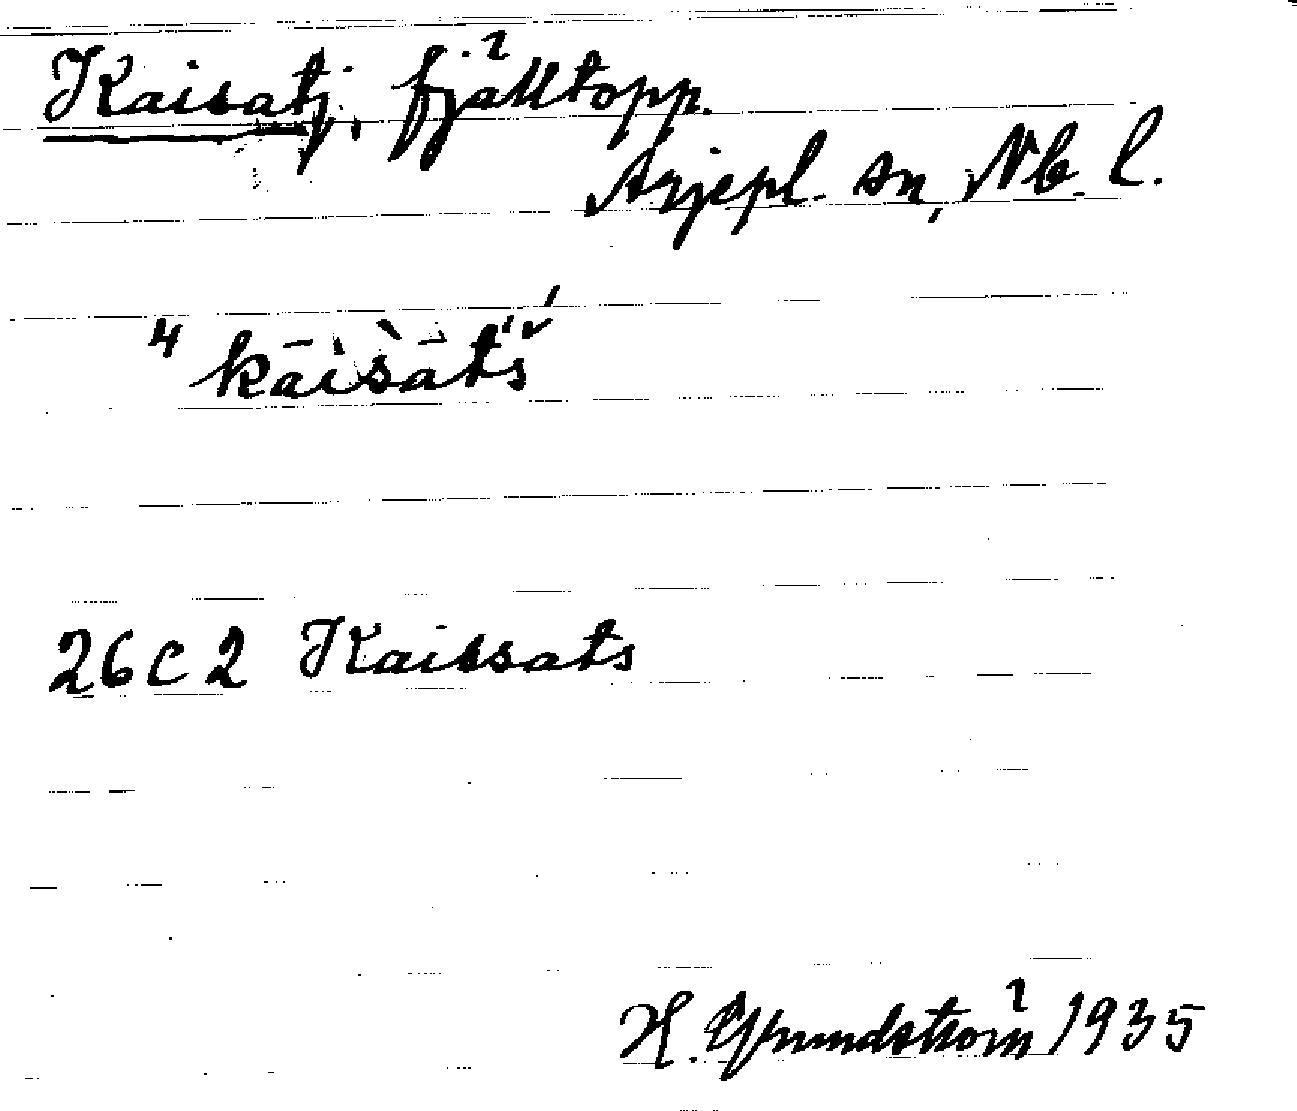 Kaisatj, fjälltopp.
Arjepl. sn, Nb. l.
4 kāìsàtš'
26 C 2 Kaissats
H. Grundström 1935